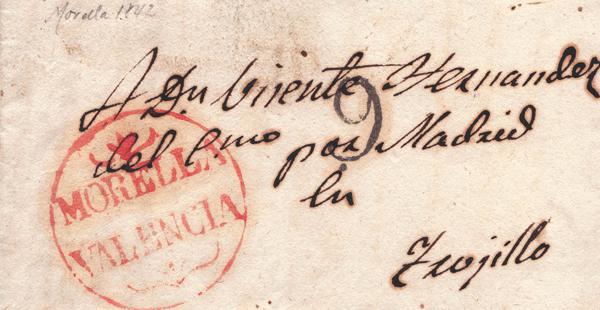 Morella 1842
A Dn Vicente Hernandez
9
del Cmo por Madrid
En
Trojillo
MORELLA
VALENCIA